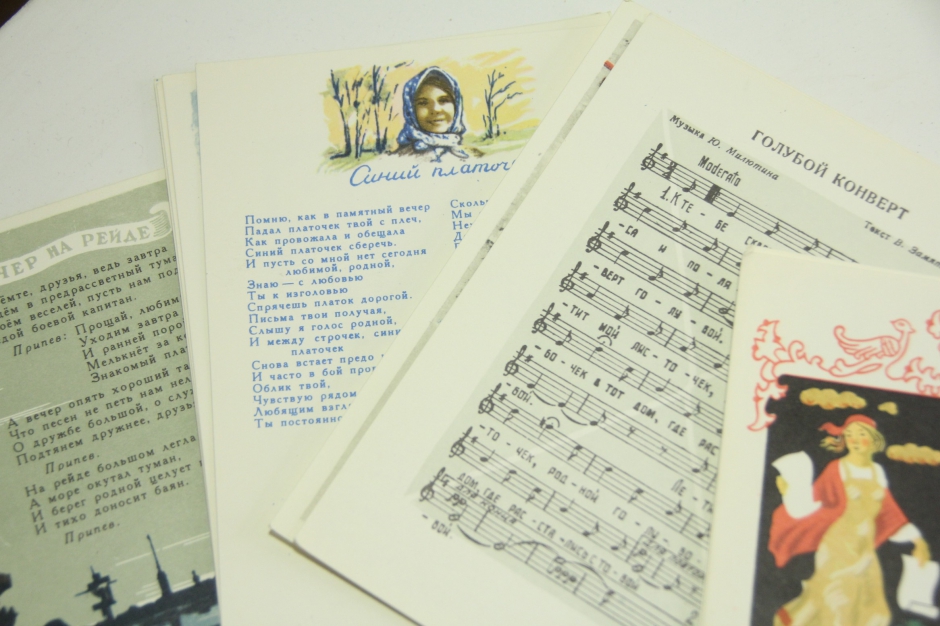 ЧЕР НА РЕЙДЕ
ёмте, друзья, ведь завтра
дём в предрассветный тума
оём веселей, пусть нам под
дой боевой капитан.
Припев: Прощай, любим
Уходим завтра
И ранней поро
Мелькнёт за к
Знакомый пла
А вечер опять хороший та
Что песен не петь нам нел
О дружбе большой, о слу
Подтянем дружнее, друзь
Припев.
На рейде большом легла
А море окутал туман,
И берег родной целует
И тихо доносит баян.
Припев.
Синий платоч
Помню, как в памятный вечер
Падал платочек твой с плеч,
Как провожала и обещала
Синий платочек сберечь.
И пусть со мной нет сегодня
любимой, родной,
Знаю — с любовью
Ты к изголовью
Спрячешь платок дорогой.
Письма твои получая,
Слышу я голос родной,
И между строчек, сини
платочек
Снова встает предо
И часто в бой про
Облик твой,
Чувствую рядом
Любящим взгл
Ты постоянно
Сколь
Мы
ГОЛУБОЙ КОНВЕРТ
Музыка Ю. Милютина
Текст В. Замят
Moderato
1. К ТЕ - БЕ СКА
- СЯ И ПО - ЛЯ
- ВЕРТ ГО - ЛУ - БОЙ.
- ТИТ МОЙ ЛИС - ТО - ЧЕК,
- БО - ЧЕК В ТОТ ДОМ, ГДЕ РАС
- ВОЙ.
- ТО - ЧЕК, РОД - НОЙ ГО - ЛУ - БО
ЛЕ - ТИ
ДОМ, ГДЕ РАС - СТА - ЛИСЬ С ТО - БОЙ
- БОЙ.